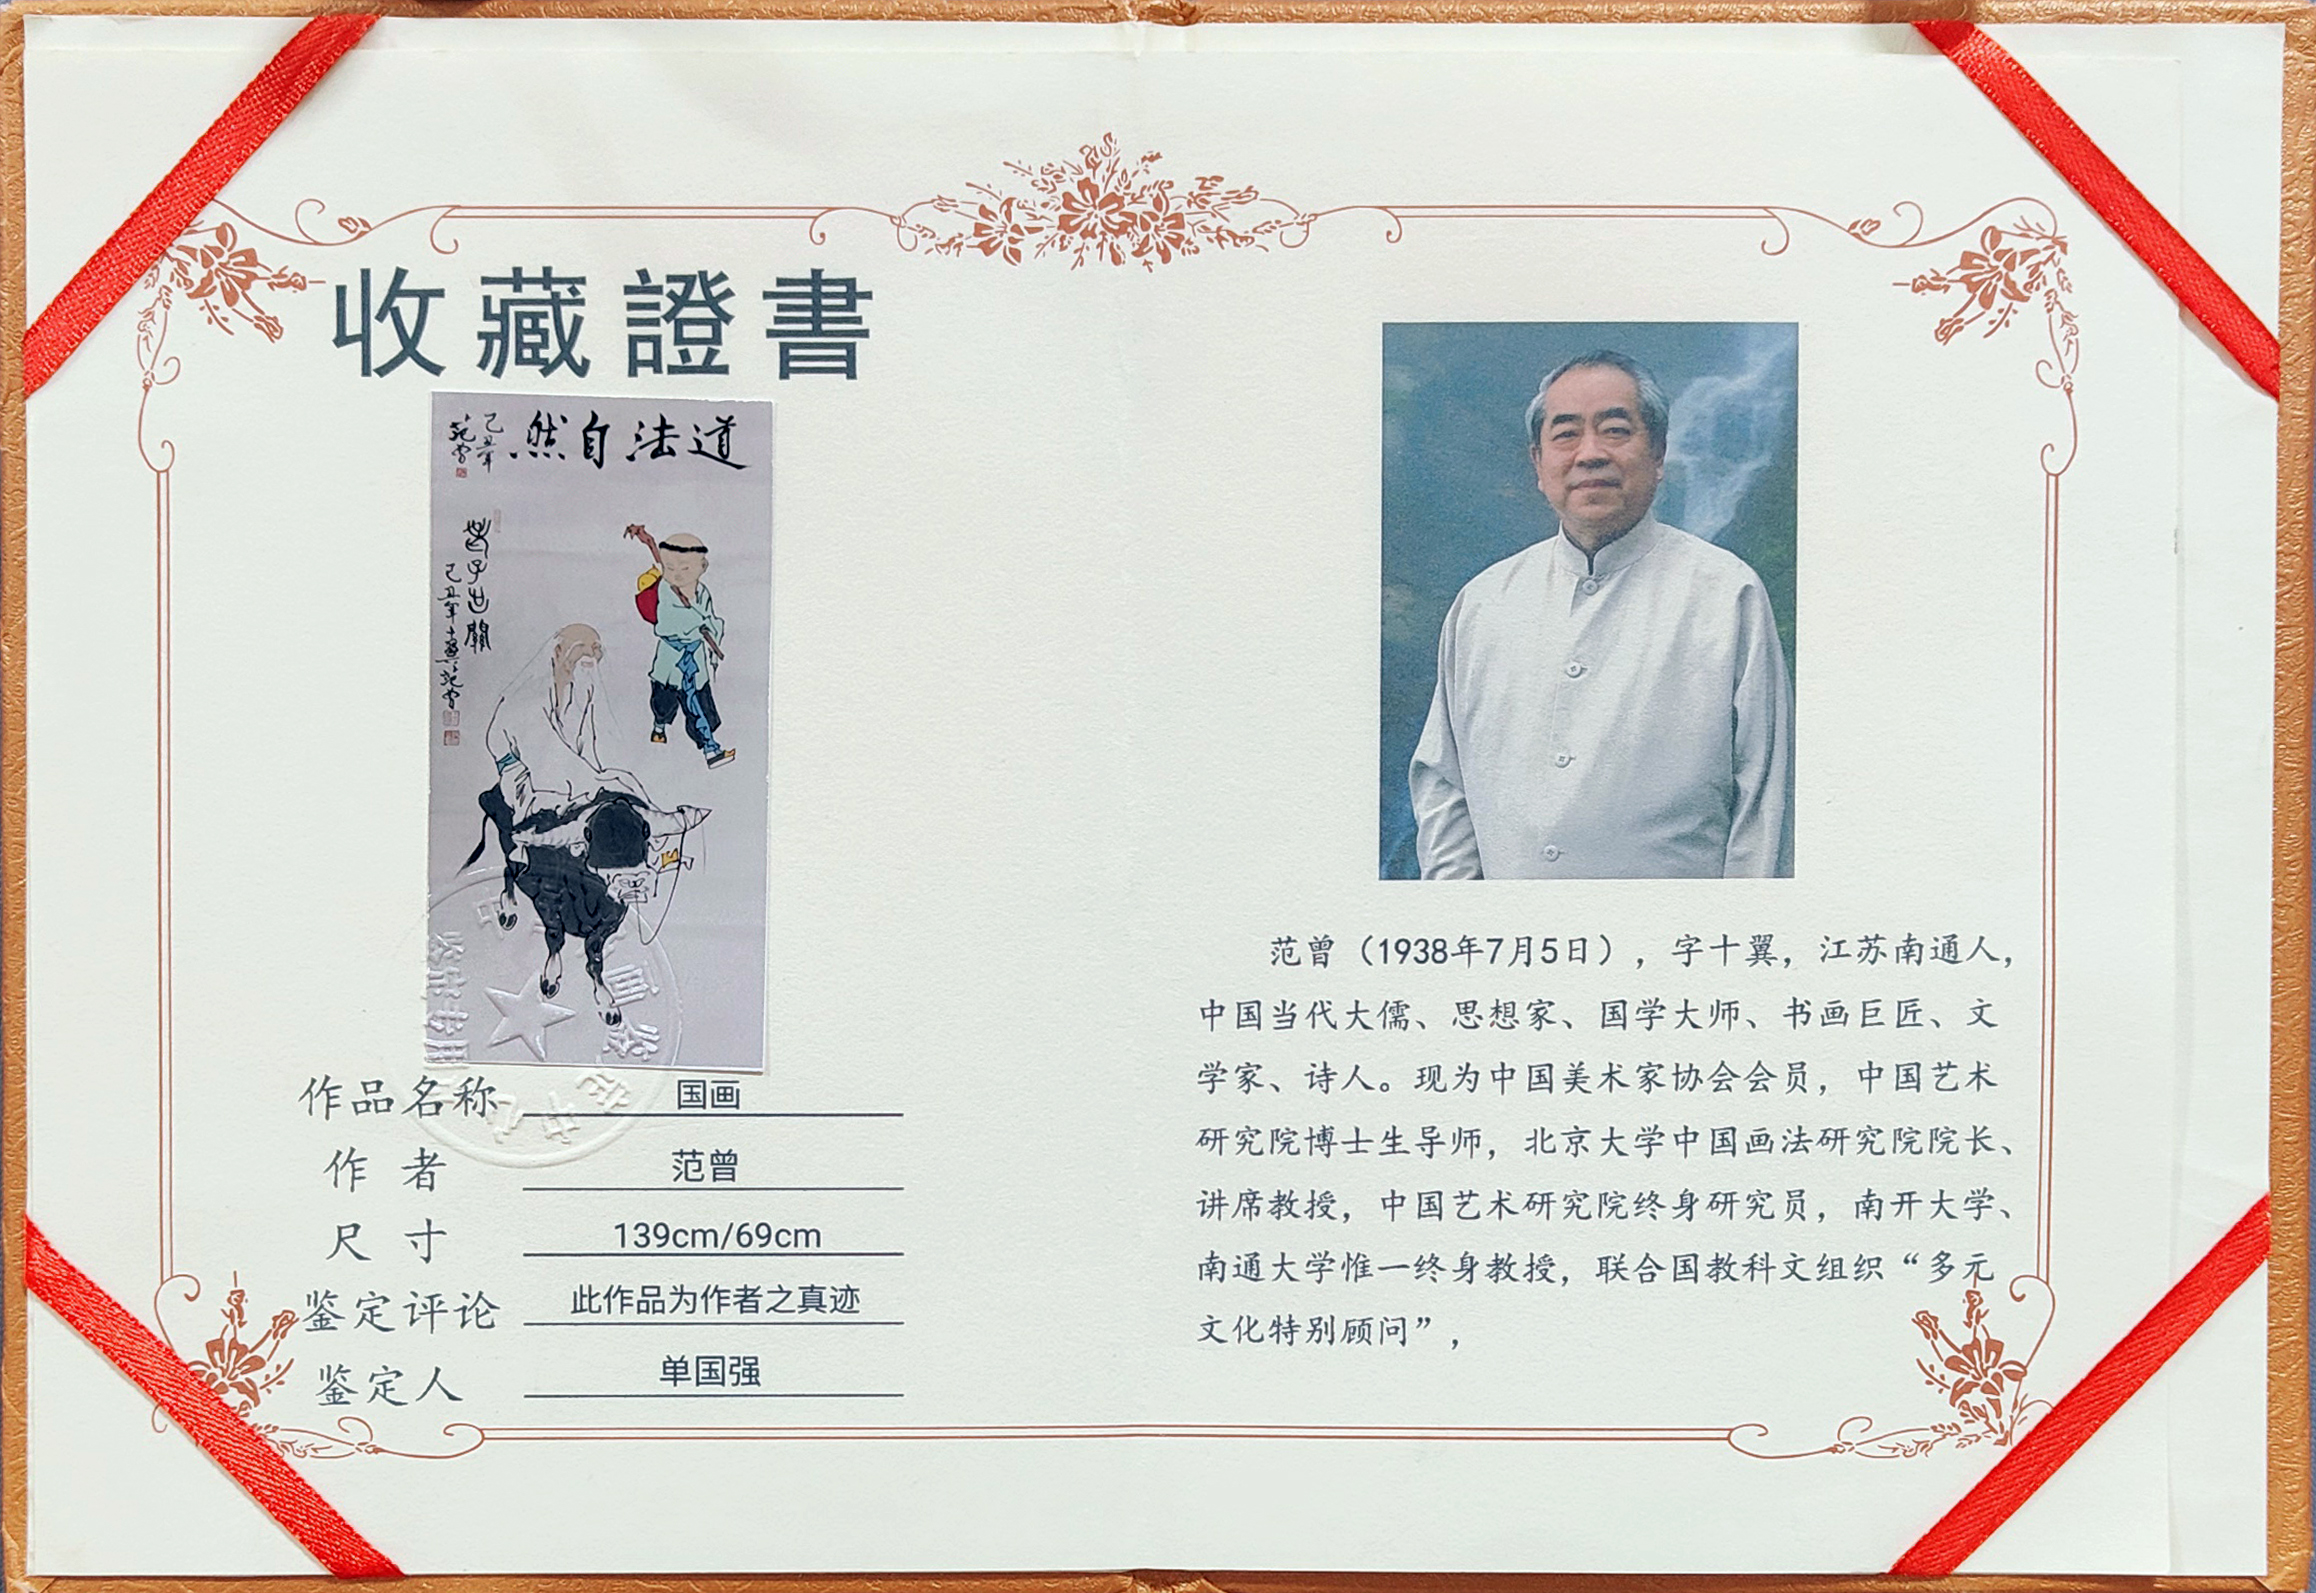 收藏證書
道法自然
己丑年
范曾
老子出關
己丑年十翼范曾
作品名称 国画
作者 范曾
尺寸 139cm/69cm
鉴定评论 此作品为作者之真迹
鉴定人 单国强
范曾（1938年7月5日），字十翼，江苏南通人，
中国当代大儒、思想家、国学大师、书画巨匠、文
学家、诗人。现为中国美术家协会会员，中国艺术
研究院博士生导师，北京大学中国画法研究院院长、
讲席教授，中国艺术研究院终身研究员，南开大学、
南通大学惟一终身教授，联合国教科文组织“多元
文化特别顾问”，